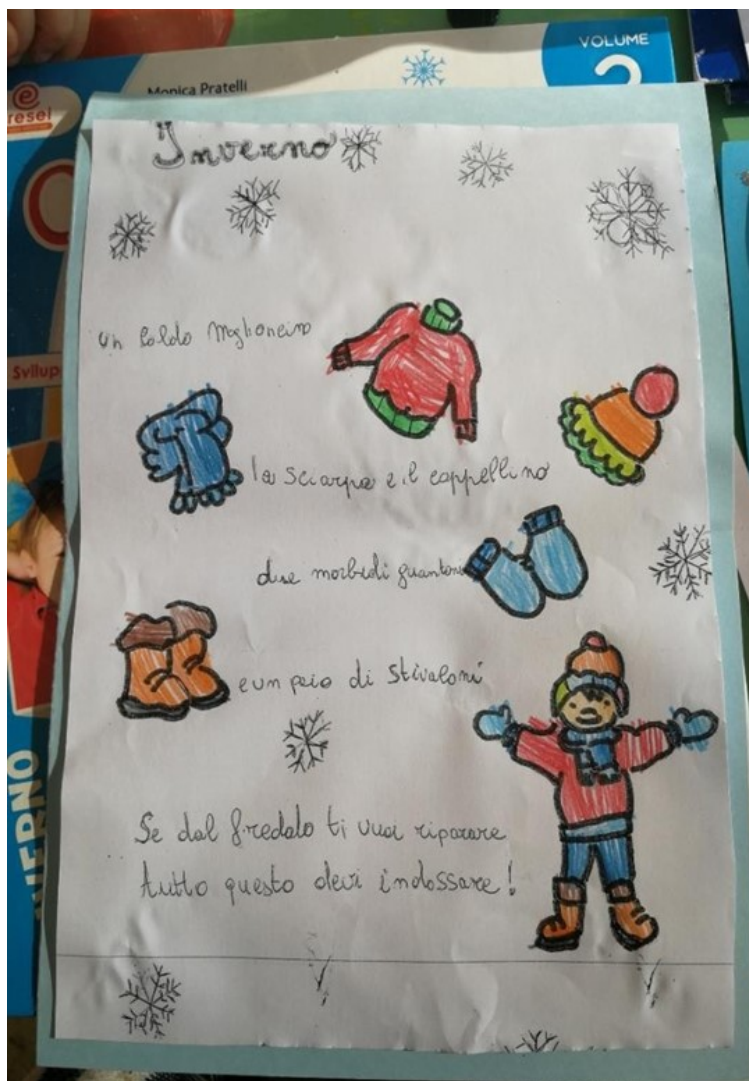 VOLUME
2
Monica Pratelli
e
resel
Svilup
Inverno
un caldo maglioncino
la sciarpa e il cappellino
due morbidi guantoni
e un paio di stivaloni
Se dal freddo ti vuoi riparare
tutto questo devi indossare!